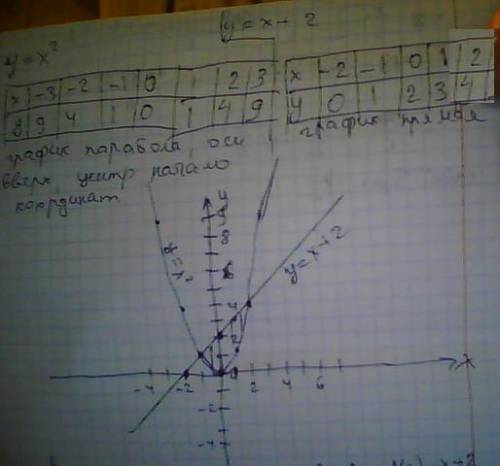 y=x+2
y=x²
x -3 -2 -1 0 1 2 3
y 9 4 1 0 1 4 9
x -2 -1 0 1 2
y 0 1 2 3 4
график парабола, оси
вверх, центр начало
координат
график прямая
y
9
8
6
4
2
y=x²
y=x+2
-4 -2 0 2 4 6 x
-2
-4